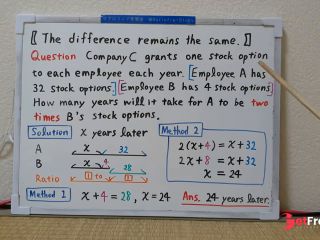 〖 The difference remains the same. 〗
Question Company C grants one stock option
to each employee each year. [Employee A has
32 stock options.] [Employee B has 4 stock options.]
How many years will it take for A to be two
times B's stock options.
Solution x years later
A x 32
B x 4 28
Ratio 1 to 1
Method 1 x + 4 = 28 , x = 24
Method 2
2(x+4) = x + 32
2x + 8 = x + 32
x = 24
Ans. 24 years later.